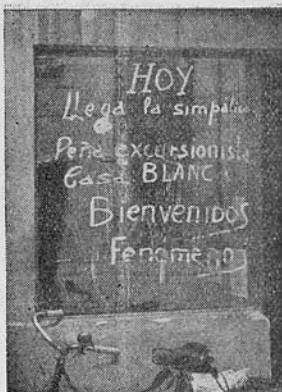 HOY
Llega la simpática
Peña excursionista
Casa BLANCA
Bienvenidos
Fenómeno